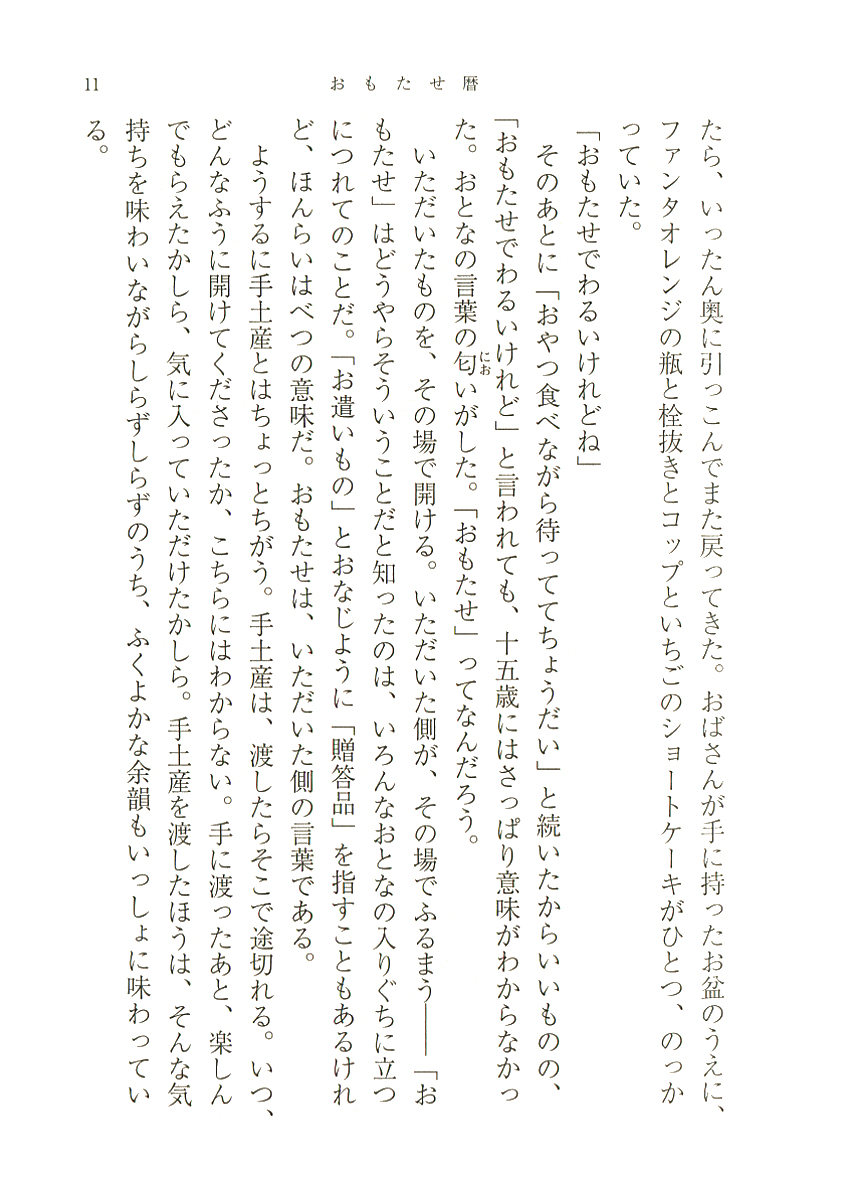 11
おもたせ暦
たら、いったん奥に引っこんでまた戻ってきた。おばさんが手に持ったお盆のうえに、
ファンタオレンジの瓶と栓抜きとコップといちごのショートケーキがひとつ、のっか
っていた。
「おもたせでわるいけれどね」
そのあとに「おやつ食べながら待っててちょうだい」と続いたからいいものの、
「おもたせでわるいけれど」と言われても、十五歳にはさっぱり意味がわからなかっ
た。おとなの言葉の匂いがした。「おもたせ」ってなんだろう。
にお
いただいたものを、その場で開ける。いただいた側が、その場でふるまう――「お
もたせ」はどうやらそういうことだと知ったのは、いろんなおとなの入りぐちに立つ
につれてのことだ。「お遣いもの」とおなじように「贈答品」を指すこともあるけれ
ど、ほんらいはべつの意味だ。おもたせは、いただいた側の言葉である。
ようするに手土産とはちょっとちがう。手土産は、渡したらそこで途切れる。いつ、
どんなふうに開けてくださったか、こちらにはわからない。手に渡ったあと、楽しん
でもらえたかしら、気に入っていただけたかしら。手土産を渡したほうは、そんな気
持ちを味わいながらしらずしらずのうち、ふくよかな余韻もいっしょに味わってい
る。